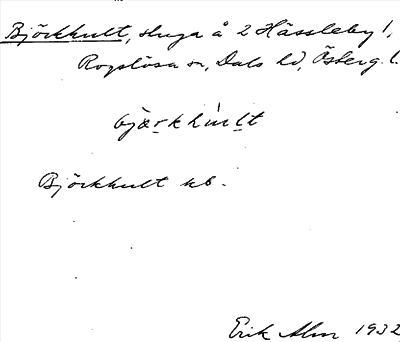 Björkhult, stuga å 2 Hässleby /,
Rogslösa sn, Dals hd, Österg. l.
bjærkhult
Björkhult kb.
Erik Alm 1932